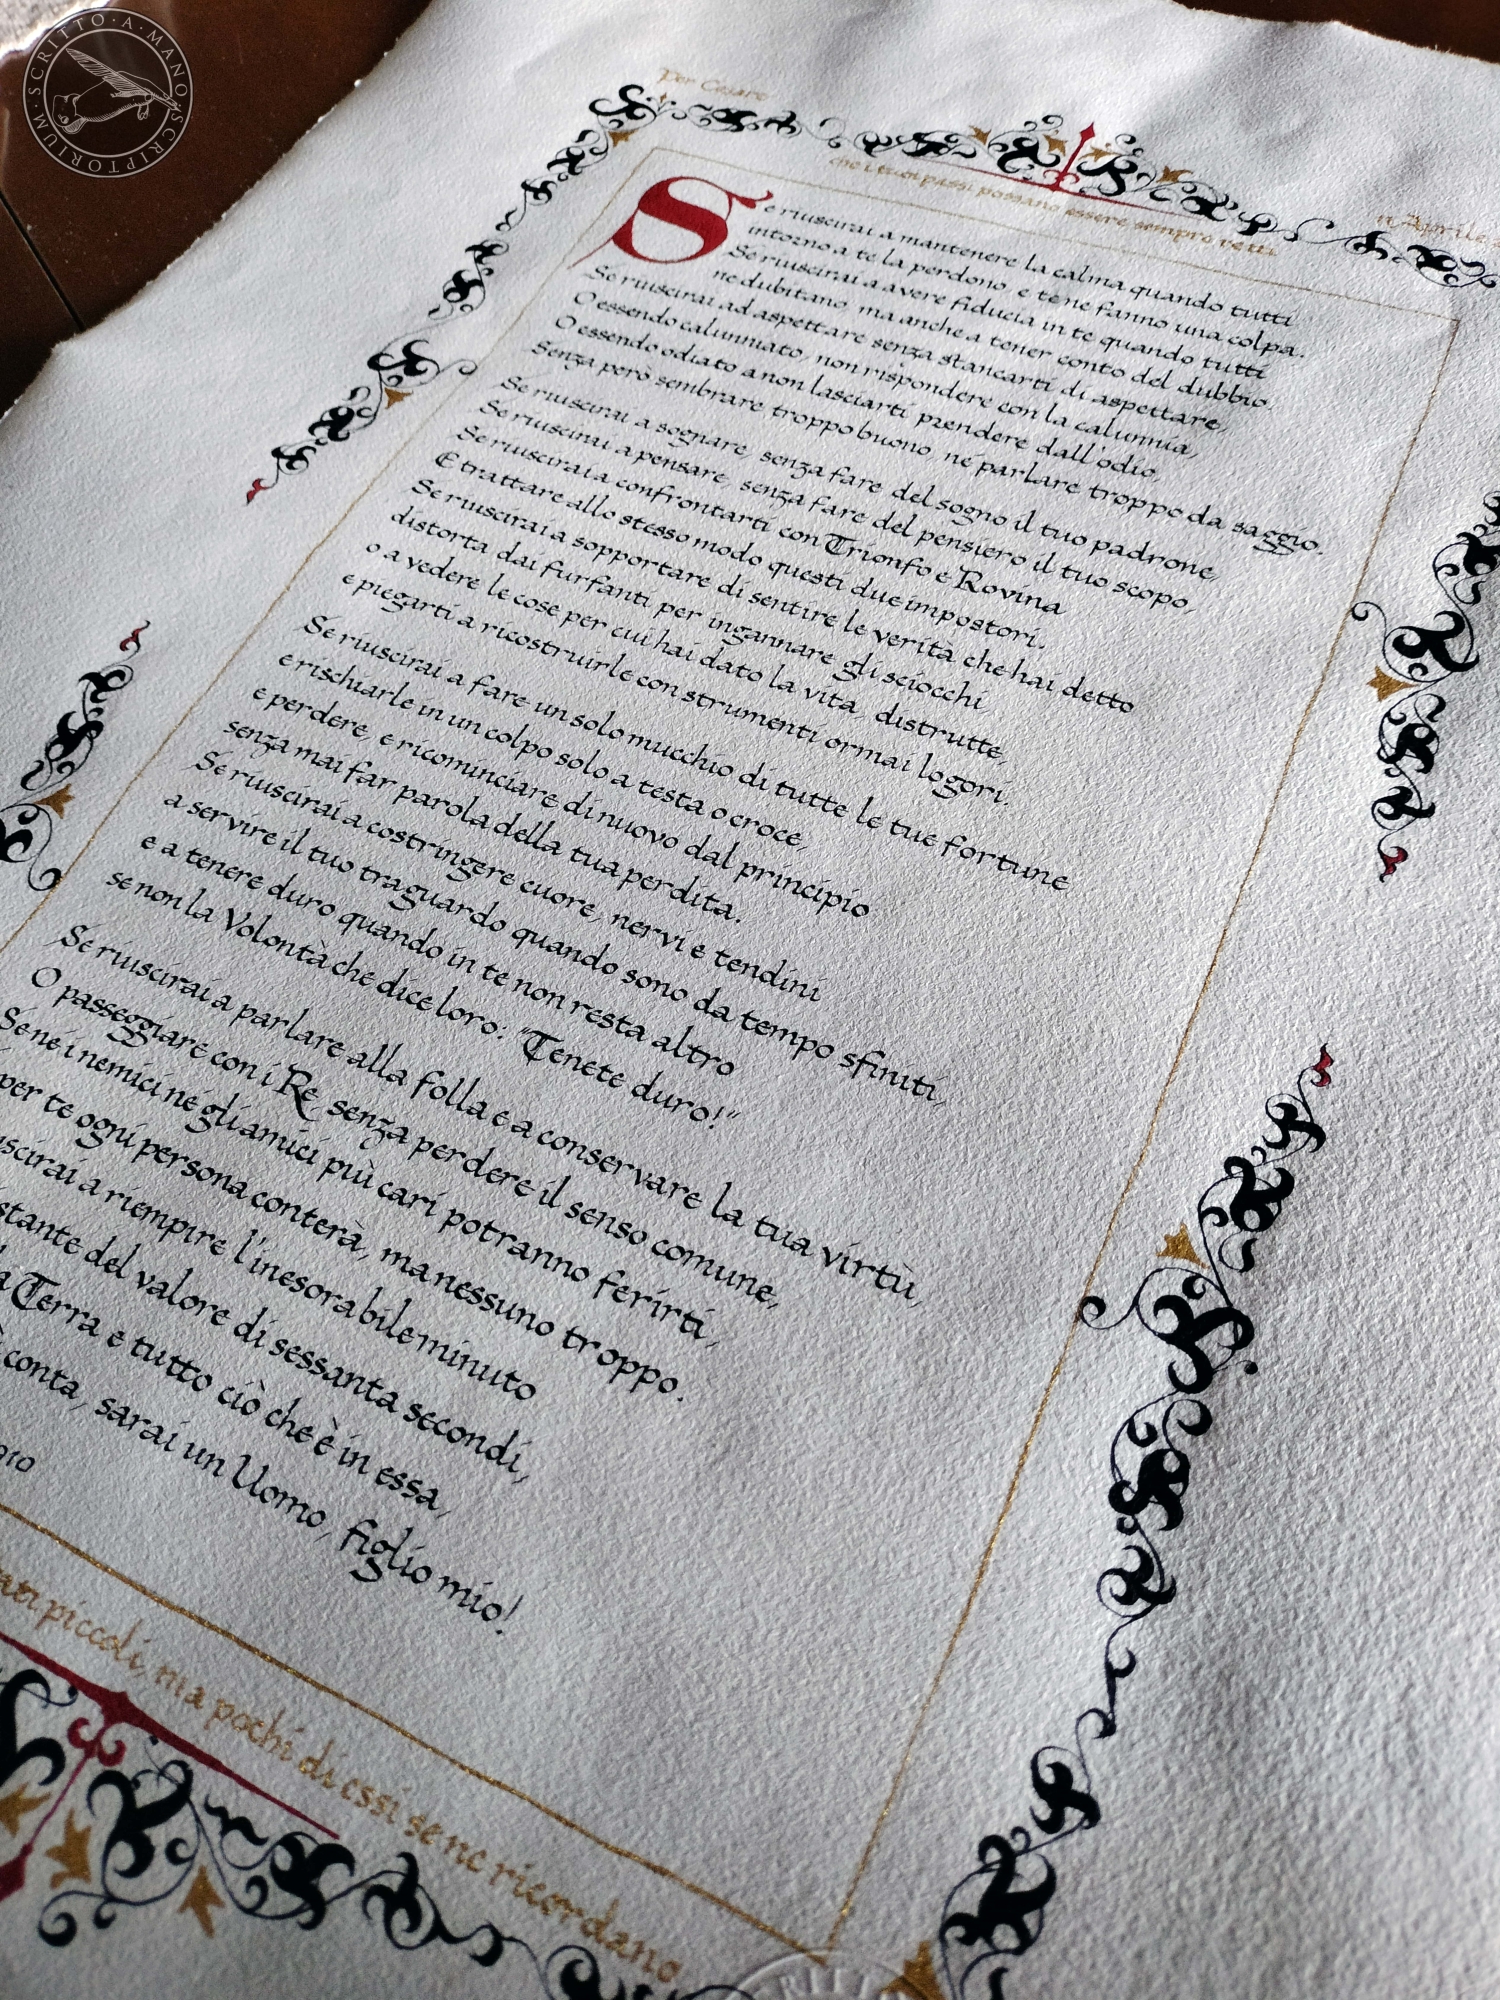 SCRITTO·A·MANO·SCRIPTORIUM·
Per Cesare
11 Aprile
che i tuoi passi possano essere sempre retti
Se riuscirai a mantenere la calma quando tutti
intorno a te la perdono, e te ne fanno una colpa.
Se riuscirai a avere fiducia in te quando tutti
ne dubitano, ma anche a tener conto del dubbio.
Se riuscirai ad aspettare senza stancarti di aspettare,
O essendo calunniato, non rispondere con la calunnia,
O essendo odiato a non lasciarti prendere dall'odio,
Senza però sembrare troppo buono, né parlare troppo da saggio.
Se riuscirai a sognare, senza fare del sogno il tuo padrone,
Se riuscirai a pensare, senza fare del pensiero il tuo scopo,
Se riuscirai a confrontarti con Trionfo e Rovina
E trattare allo stesso modo questi due impostori.
Se riuscirai a sopportare di sentire le verità che hai detto
distorta dai furfanti per ingannare gli sciocchi,
o a vedere le cose per cui hai dato la vita, distrutte,
e piegarti a ricostruirle con strumenti ormai logori.
Se riuscirai a fare un solo mucchio di tutte le tue fortune
e rischiarle in un colpo solo a testa o croce,
e perdere, e ricominciare di nuovo dal principio
senza mai far parola della tua perdita.
Se riuscirai a costringere cuore, nervi e tendini
a servire il tuo traguardo quando sono da tempo sfiniti,
e a tenere duro quando in te non resta altro
se non la Volontà che dice loro: "Tenete duro!"
Se riuscirai a parlare alla folla e a conservare la tua virtù,
O passeggiare con i Re, senza perdere il senso comune,
Se né i nemici né gli amici più cari potranno ferirti,
per te ogni persona conterà, ma nessuno troppo.
a riempire l'inesorabile minuto
del valore di sessanta secondi,
Terra e tutto ciò che è in essa,
conta, sarai un Uomo, figlio mio!
piccoli, ma pochi di essi se ne ricordano